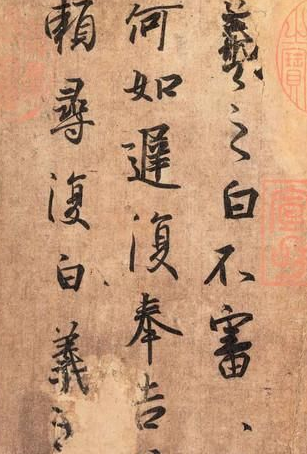 羲之白不審、
何如遲復奉告
頼尋復白羲之